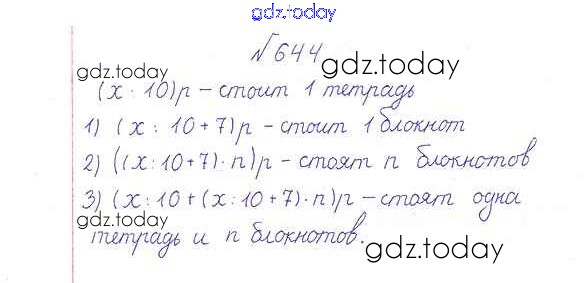 gdz.today
№644
gdz.today gdz.today
(x : 10)р – стоит 1 тетрадь
1) (x : 10 + 7)р – стоит 1 блокнот
2) ((x : 10 + 7) · n)р – стоят n блокнотов
3) (x : 10 + (x : 10 + 7) · n)р – стоят одна
тетрадь и n блокнотов.
gdz.today gdz.today